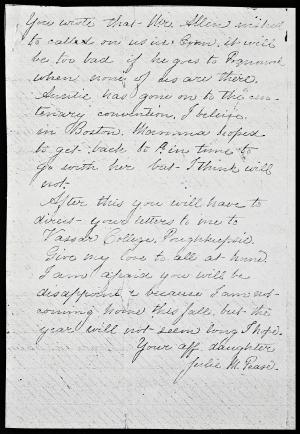 You wrote that Mr. Allen wished
to called on us in Conn. it will
be too bad if he goes to
when none of us are there.
Auntie has gone on to the cen-
tenary convention, I believe
in Boston. Mamma hoped
to get back to P. in time to
go with her but I think will
not.
After this you will have to
direct your letters to me to
Vassar College, Poughkeepsie.
Give my love to all at home
I am afraid you will be
disappointed because I am not
coming home this fall, but the
year will not seem long I hope.
Your aff. daughter
Julie M. Pease.